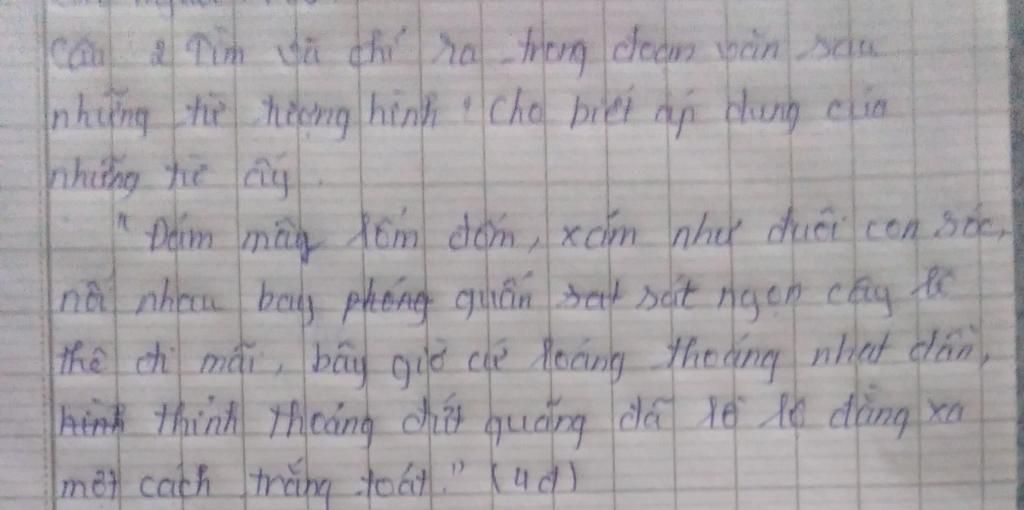 Câu 2 Tìm và chỉ ra trong đoạn văn sau
những từ tượng hình. Cho biết áp dụng của
những từ ấy.
"Đám mây lốm đốm, xám như đuôi con sóc,
nối nhau bay quấn sát sát ngọn cây lê
thê đi mãi, bây giờ cứ loáng thoáng nhạt dần,
thỉnh thoảng đứt quãng đã lồ lộ đằng xa
một cách trắng toát." (4đ)